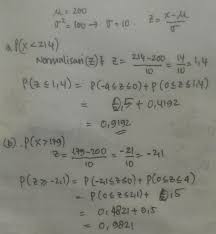 μ = 200
σ² = 100 → σ = 10. z = x - μ / σ
a. P(x < 214)
Normalisasi (z) z = 214-200 / 10 = 14 / 10 = 1,4
P(z ≤ 1,4) = P(-4 ≤ z ≤ 0) + P(0 ≤ z ≤ 1,4)
= 0,5 + 0,4192
= 0,9192
(b). P(x > 179)
z = 179-200 / 10 = -21 / 10 = -2,1
P(z ≥ -2,1) = P(-2,1 ≤ z ≤ 0) + P(0 ≤ z ≤ 4)
= P(0 ≤ z ≤ 2,1) + 0,5
= 0,4821 + 0,5
= 0,9821